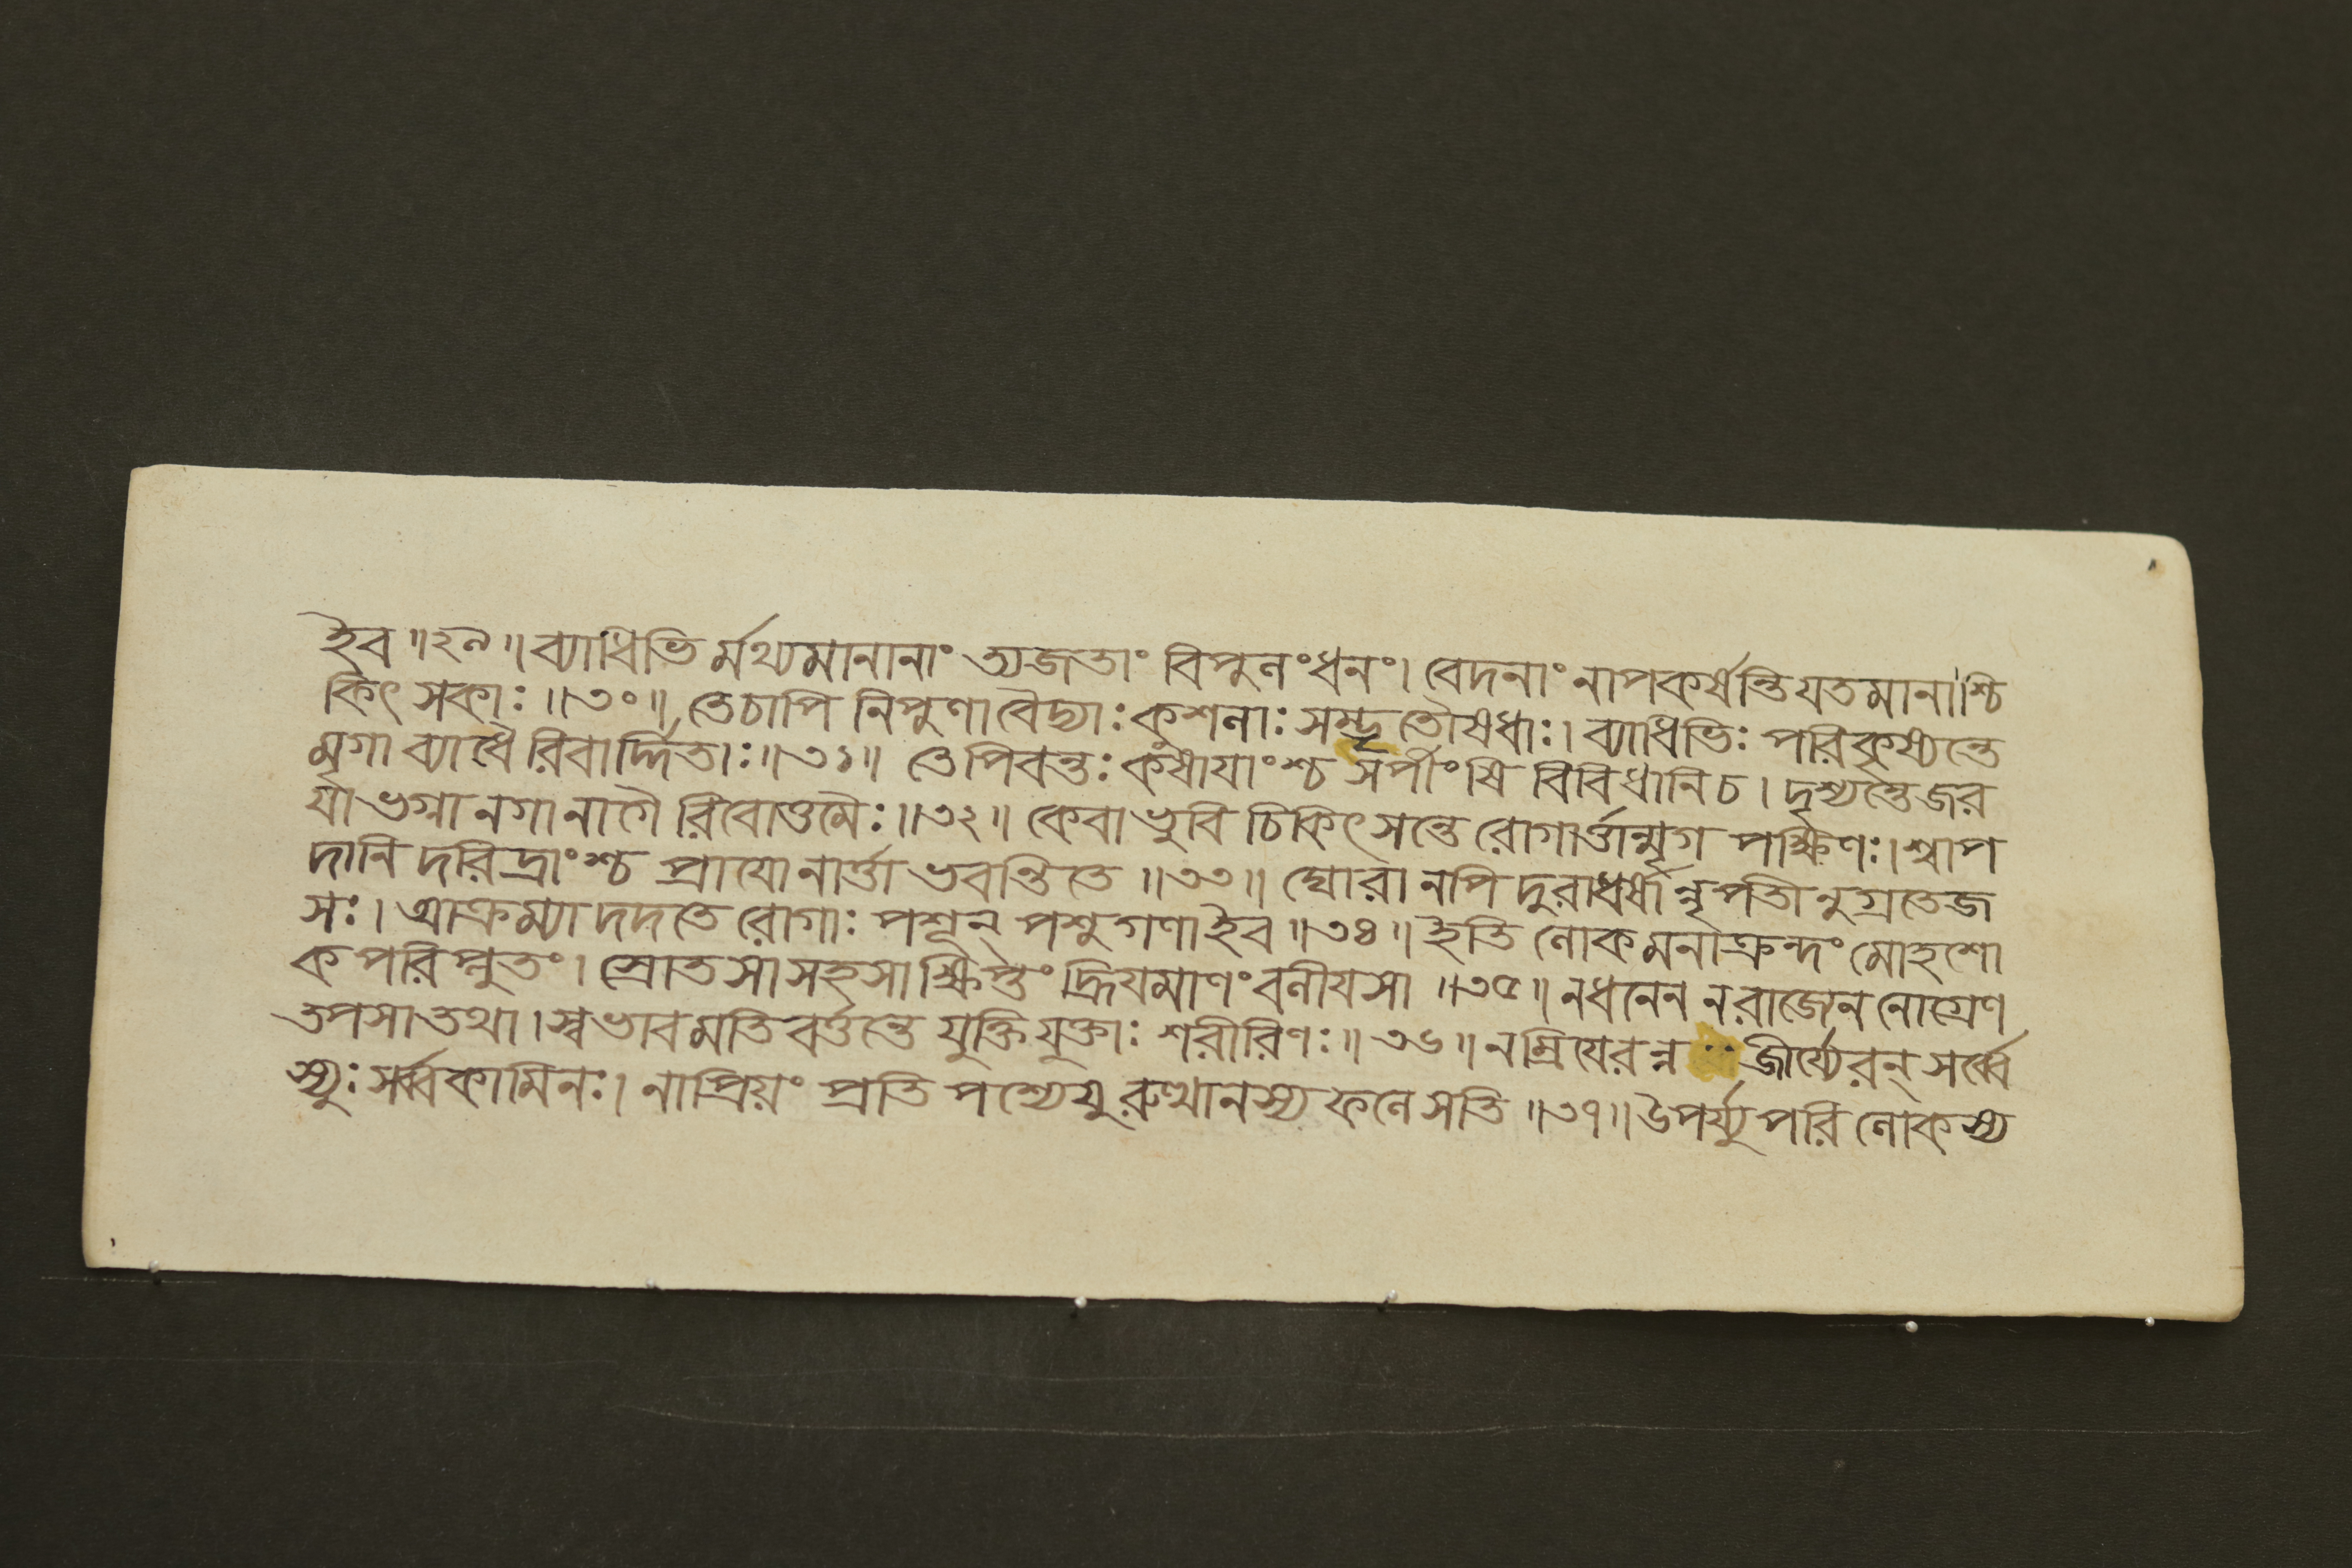 ইৈব ॥২৯॥ ব্যাধিভি র্মথ্যমানানাং ত্যজতাং বিপুলংধনং। বেদনাং নাপকর্ষন্তি যতমানাশ্চি
কিৎ সকাঃ ॥৩০॥ তেচাপি নিপুণাবৈদ্যাঃ কুশলাঃ সম্ভৃতৌষধাঃ। ব্যাধিভিঃ পরিকৃষ্যন্তে
মৃগা ব্যাধৈ রিবার্দ্দিতাঃ॥৩১॥ তেপিবন্তঃ কষাযাংশ্চ সর্পীংষি বিবিধানিচ। দৃশ্যন্তেজর
যাভগ্না নগানাগৈ রিবোত্তমৈঃ॥৩২॥ কেবাভুবি চিকিৎসন্তে রোগার্ত্তান্মৃগ পক্ষিণঃ। শ্বাপ
দানি দরিদ্রাংশ্চ প্রাযোনার্ত্তা ভবন্তিতে ॥৩৩॥ ঘোরানপি দুরাধর্ষান্নৃপতীনুগ্রতেজ
সঃ। আক্রম্যাদদতে রোগাঃ পশূন্ পশুগণাইৈব ॥৩৪॥ ইতি লোকমনাক্রন্দং মোহশো
ক পরিপ্লুতং। স্রোতসাসহসাক্ষিপ্তং হ্রিযমাণং বলীযসা ॥৩৫॥ নধনেন নরাজ্যেন নোগ্রেণ
তপসাতথা। স্বভাবমতি বর্ত্তন্তে যুক্তিযুক্তাঃ শরীরিণঃ॥৩৬॥ নম্রিযেরন্ন জীর্য্যেরন্ সর্ব্বে
স্যুঃ সর্ব্বকামিনঃ। নাপ্রিয়ং প্রতি পশ্যেযু রুত্থানস্য ফলেসতি ॥৩৭॥ উপর্য্যুপরি লোকস্য